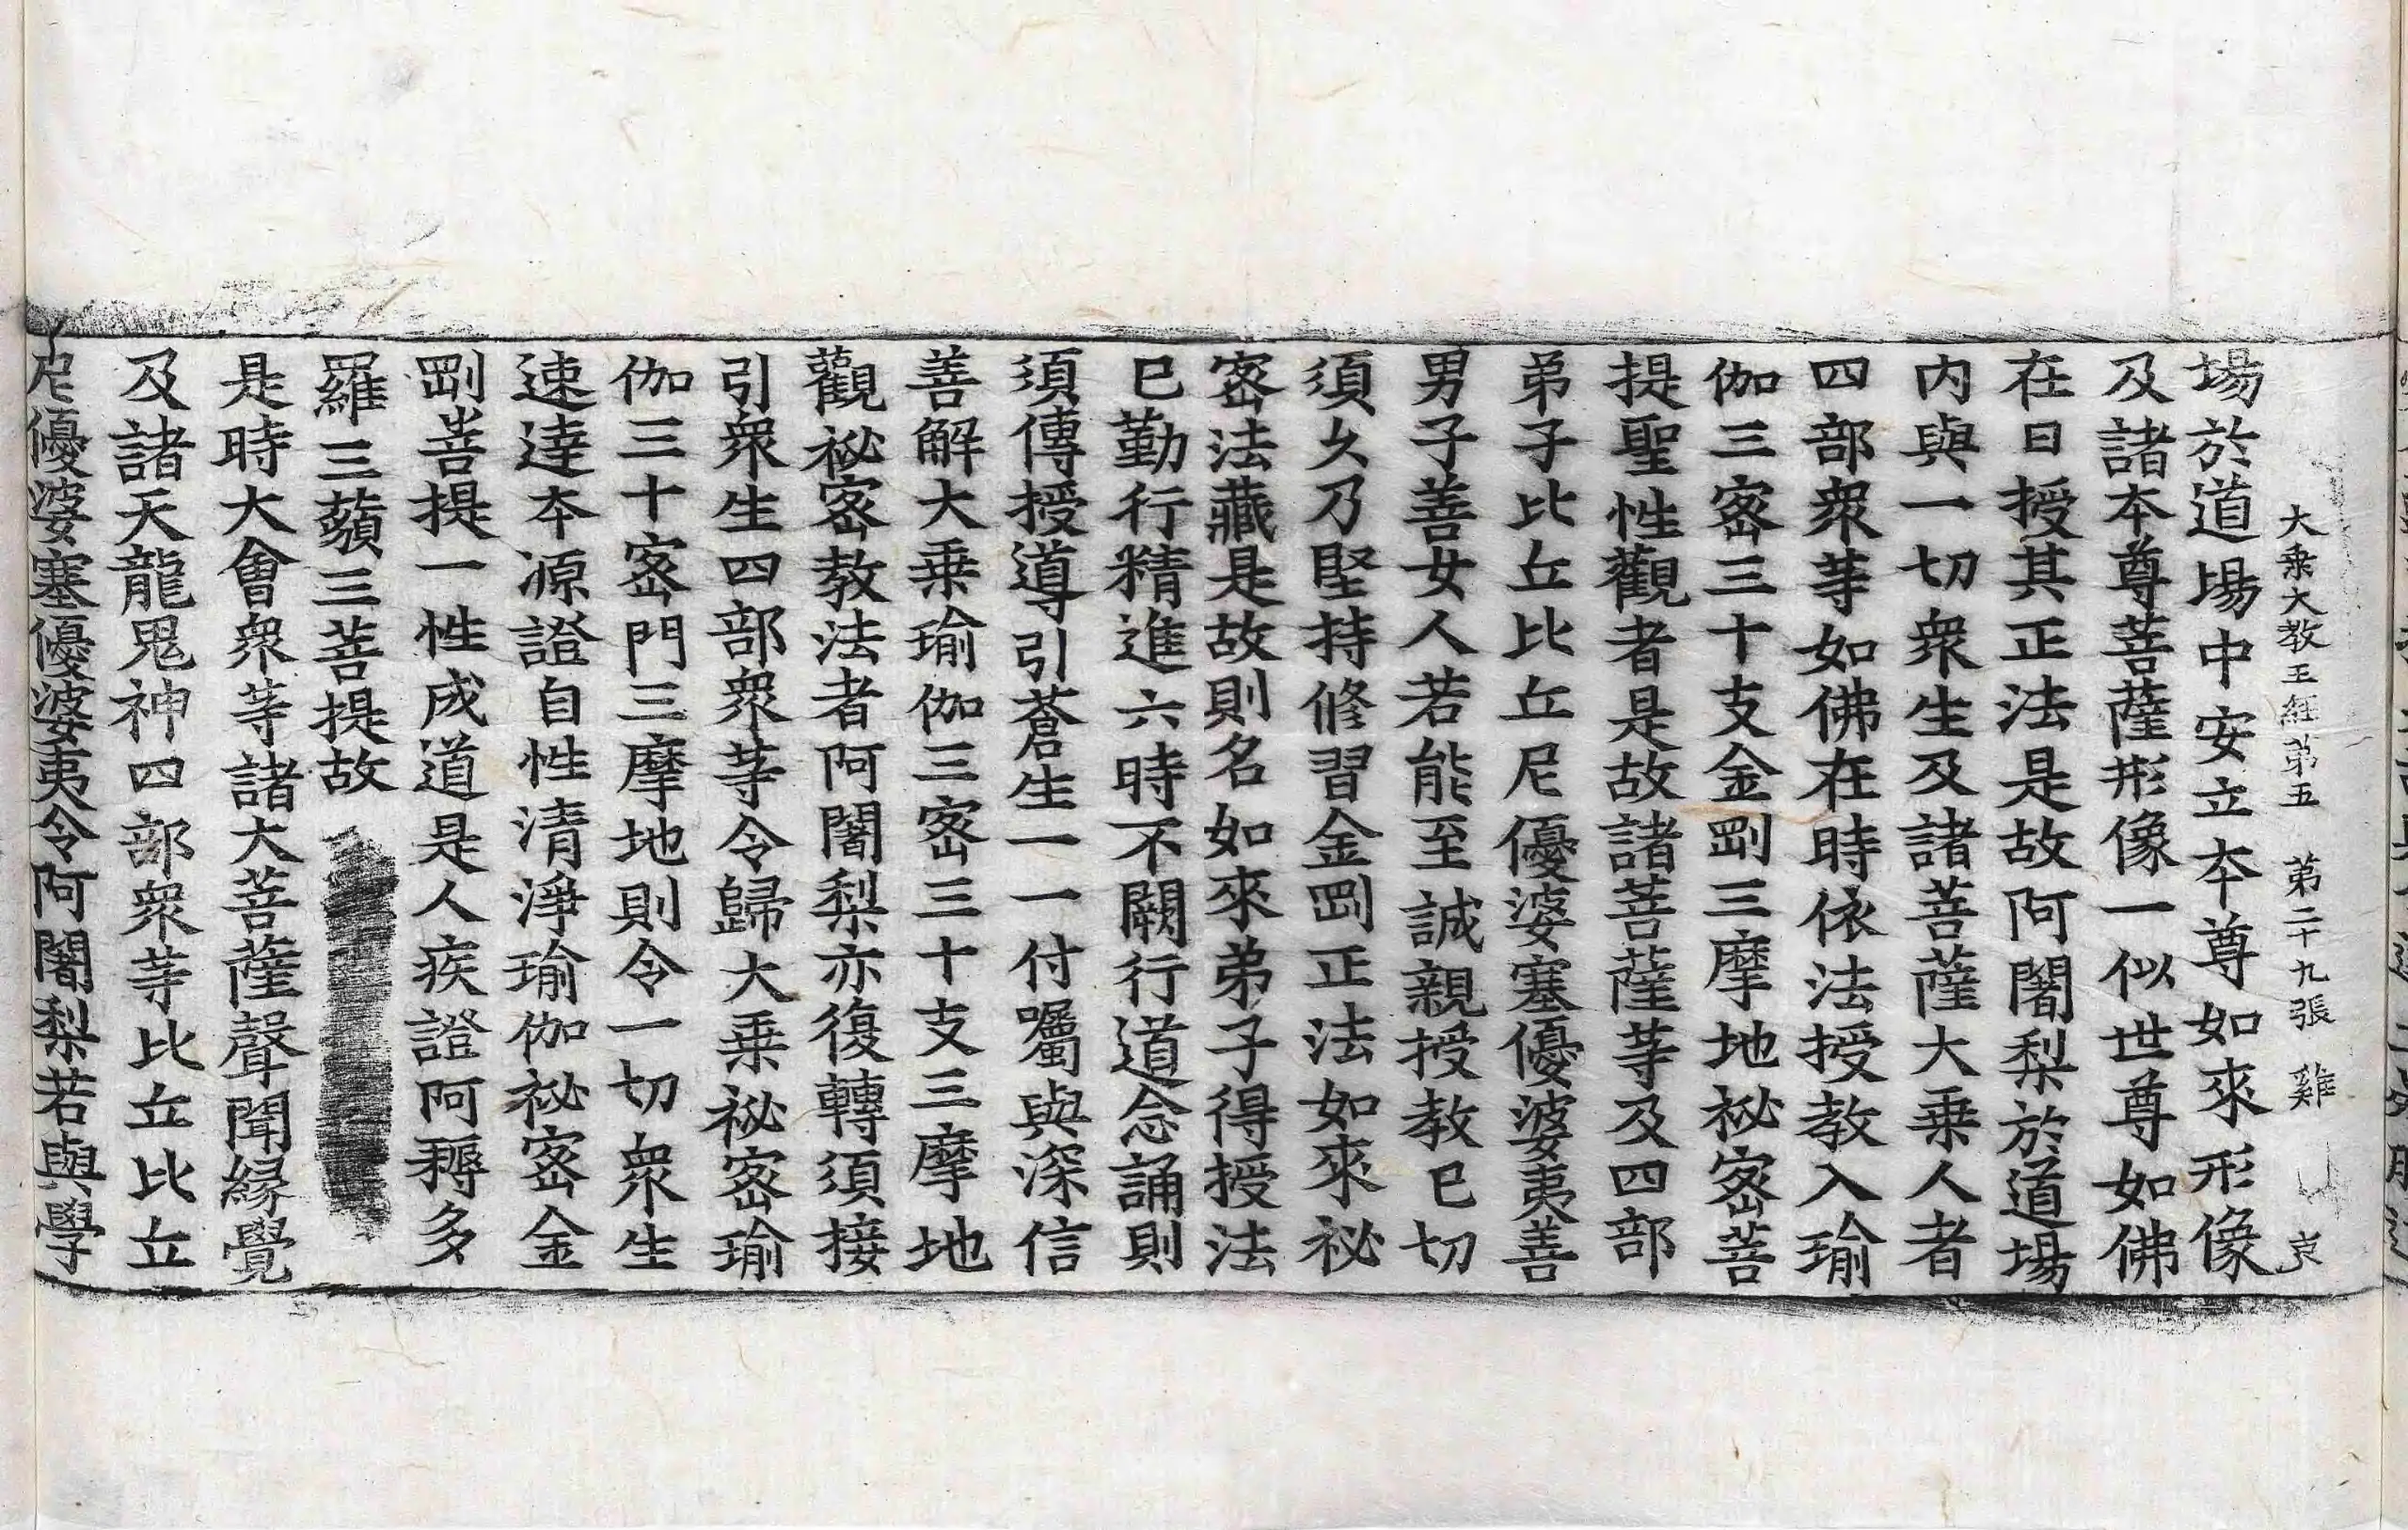 大乗大教王経第五 第二十九張 雞
場於道場中安立本尊如來形像
及諸本尊菩薩形像一似世尊如佛
在日授其正法是故阿闍梨於道場
内與一切衆生及諸菩薩大乗人者
四部衆䓁如佛在時依法授教入瑜
伽三密三十支金剛三摩地祕密菩
提聖性觀者是故諸菩薩䓁及四部
弟子比丘比丘尼優婆塞優婆夷善
男子善女人若能至誠親授教已切
須久乃堅持修習金剛正法如來祕
密法藏是故則名如來弟子得授法
已勤行精進六時不闕行道念誦則
須傳授導引蒼生一一付囑與深信
善解大乗瑜伽三密三十支三摩地
觀祕密教法者阿闍梨亦復轉須接
引衆生四部衆䓁令歸大乗祕密瑜
伽三十密門三摩地則令一切衆生
速達本源證自性清淨瑜伽祕密金
剛菩提一性成道是人疾證阿耨多
羅三藐三菩提故
是時大會衆䓁諸大菩薩聲聞縁覺
及諸天龍鬼神四部衆䓁比丘比丘
尼優婆塞優婆夷令阿闍梨若與學